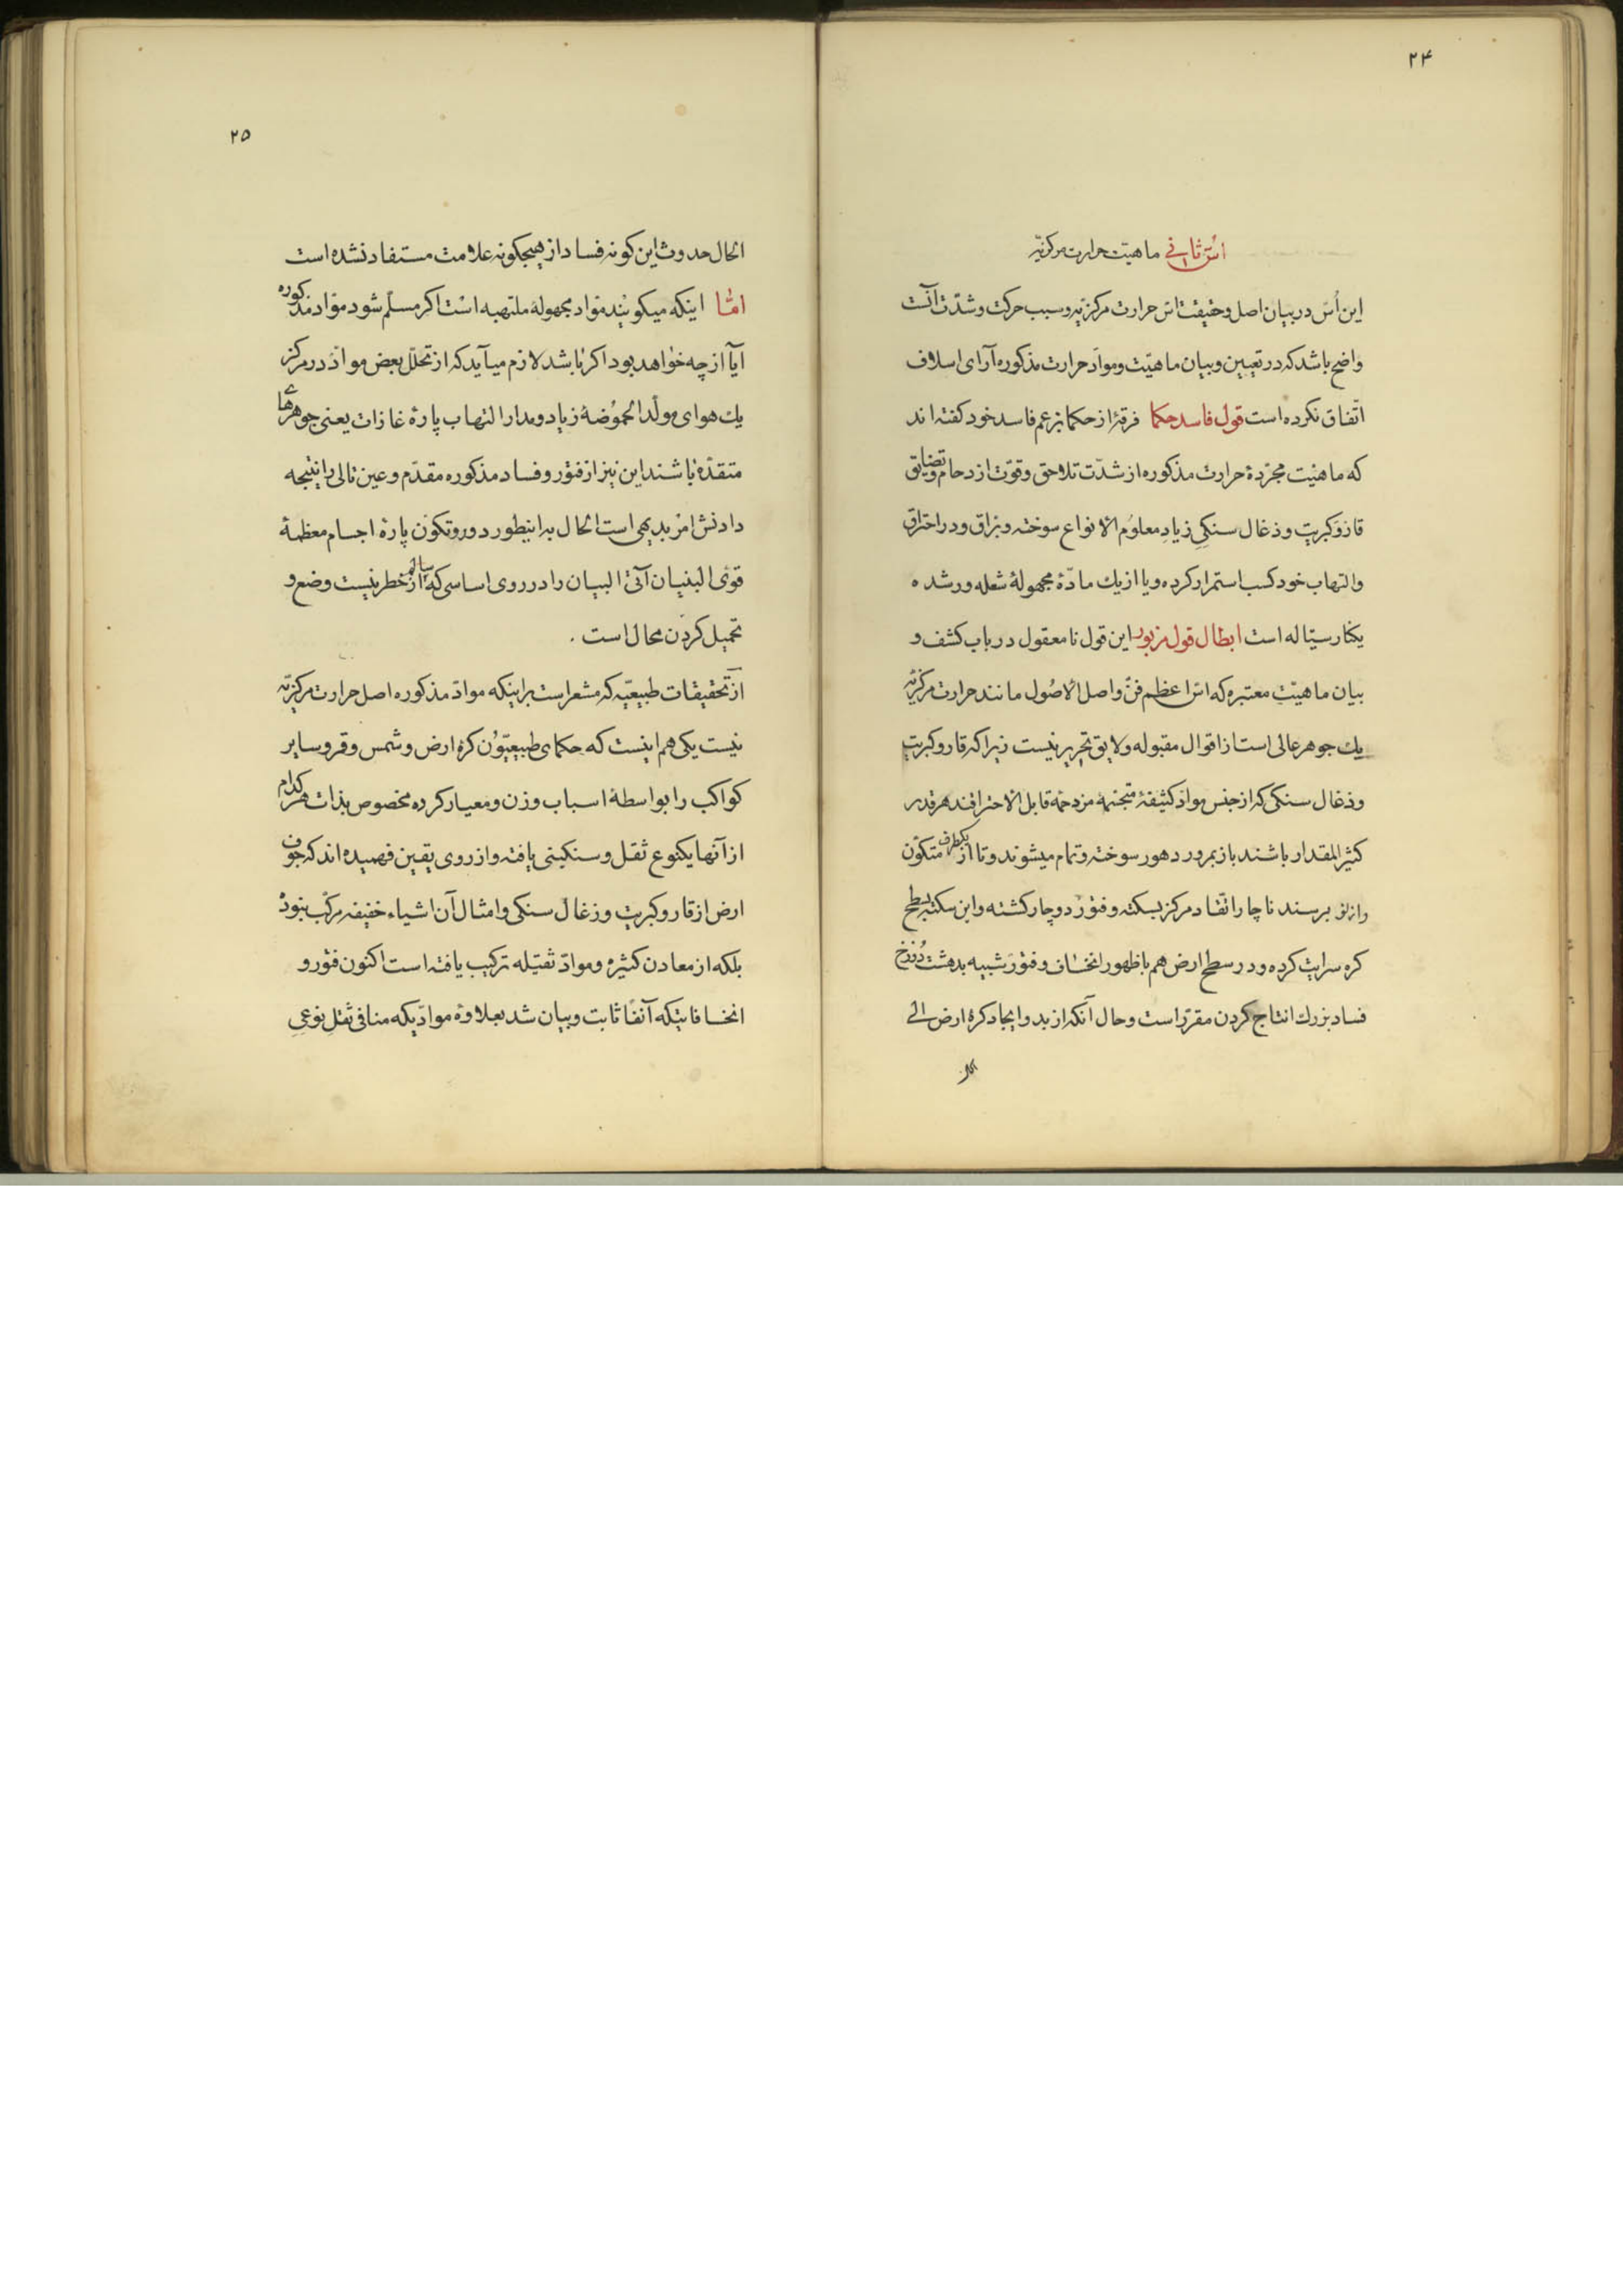 ۲۴
اسّ ثانی ماهیّت حرارت مرکزیّه
این اُسّ در بیان اصل و حقیقت اسّ حرارت مرکزیّه و سبب حرکت و شدّت آنست
واضح باشد که در تعیین و بیان ماهیّت و موادّ حرارت مذکوره آرای اسلاف
اتّفاق نکرده است قول فاسد حکما فرقهٔ از حکما بزعم فاسد خود کفته اند
که ماهیّت مجرّدهٔ حرارت مذکوره از شدّت تلاحق و قوّت ازدحام و تضایق
قاز و کبریت و ذغال سنکیِ زیادِ معلوم الانواع سوخته و بزاق و در احتراق
و التهاب خود کسب استمرار کرده و یا از یك مادّهٔ مجهولهٔ شعله ور شده
یکنار سیّاله است ابطال قول مزبور این قول نامعقول در باب کشف و
بیان ماهیّت معتبره که اسّ اعظم فنّ و اصل الاصُول مانند حرارت مرکزیّه
یك جوهر عالی است از اقوال مقبوله و لایق تحریر نیست زیرا که قار و کبریت
و ذغال سنکی که از جنس موادّ کثیفهٔ متجنمهٔ مزدحمهٔ قابل الاحتراقند هر قدر
کثیر المقدار باشند باز بمرور دهور سوخته و تمام میشوند و تا از یکطرف متکوّن
برسند ناچار اتّقاد مرکز بسکته و فتور دوچار کشته و این سکته بسطح
کره سرایت کرده و در سطح ارض هم با ظهور انخساف و فتور شبیه بدهشت دُوزخ
فساد بزرك انتاج کردن مقرّر است و حال آنکه از بدو ایجاد کرهٔ ارض الی
۲۵
الحال حدوث این کونه فساد از هیچکونه علامت مستفاد نشده است
امّا اینکه میکویند موّاد مجهولهٔ ملتهبه است اکر مسلّم شود موّاد مذکوره
آیا از چه خواهد بود اکر نباشد لازم میآید که از تحلّل بعض موادّ در مرکز
یك هوای مولّد الحموُضهٔ زیاد و مدار التهاب پارهٔ غازات یعنی جوهرهای
متقدّه باشند این نیز از فتور و فساد مذکوره مقدّم و عین تالی را نتیجه
دادنش امر بدیهی است الحال به اینطور دور و تکوّن پارهٔ اجسام معظمهٔ
قوی البنیان آتی البیان را در روی اساسی که سالم از خطر نیست وضع و
تحمیل کردن محال است .
از تحقیقات طبیعیّه که مشعر است بر اینکه موادّ مذکوره اصل حرارت مرکزیّه
نیست یکی هم اینست که حکمای طبیعیّون کرهٔ ارض و شمس و قمر و سایر
کواکب را بواسطهٔ اسباب وزن و معیار کرده مخصوص بذات هر کدام
از آنها یکنوع ثقل و سنکینی یافته و از روی یقین فهمیده اند که جوف
ارض از قار و کبریت و ذغال سنکی و امثال آن اشیاء خفیفه مرکّب نبوده
بلکه از معادن کثیره و موادّ ثقیله ترکیب یافته است اکنون فتور و
انخسافاتیکه آنفاً ثابت و بیان شد بعلاوهٔ موادّیکه منافی ثقلِ نوعیِ